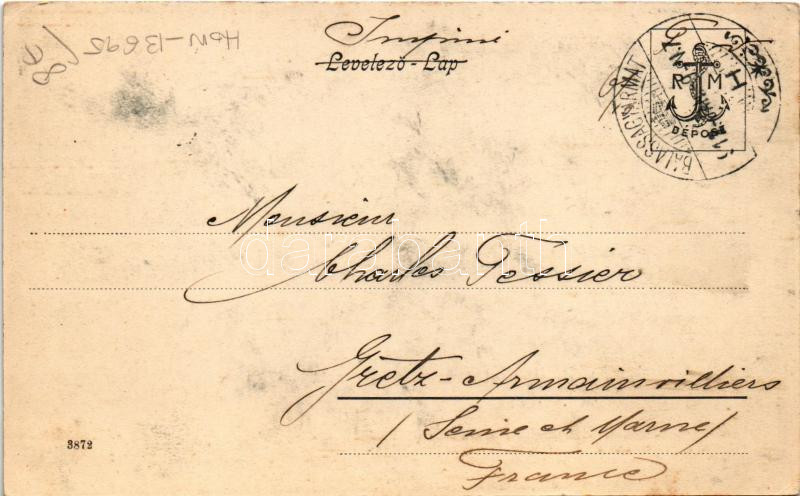 HON-13695
Imprimé
Levelező-Lap
BALASSAGYARMAT
R M
DÉPOSÉ
Monsieur
darabanth
Charles Tessier
Gretz-Armainvilliers
(Seine et Marne)
France
3872